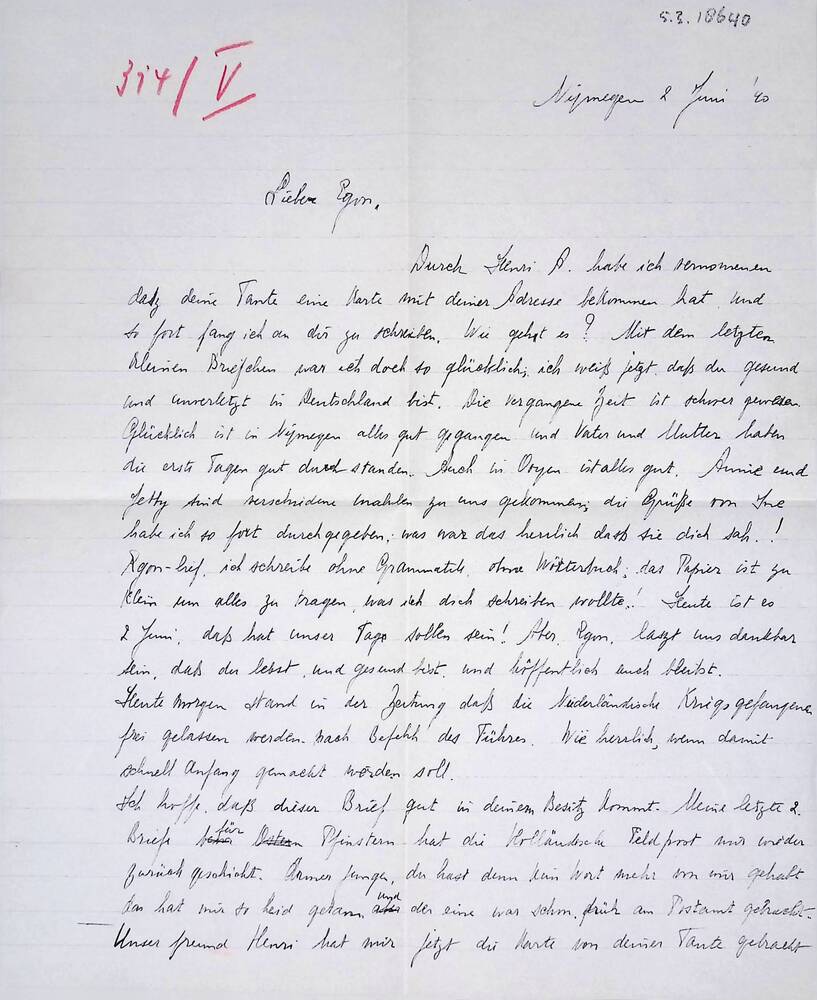 5.3. 18640
314/V
Nijmegen 2 Juni '40
Lieber Egon,
Durch Henri A. habe ich vernomenen
dasz deine Tante eine Karte mit deiner Adresse bekommen hat, und
so fort fang ich an dir zu schreiben. Wie gehgt es? Mit dem letzten
kleinen Briefchen war ich doch so glücklich; ich weiß jetzt, daß du gesund
und unverletzt in Deutschland bist. Die vergangene Zeit ist schwer gewesen.
Glücklich ist in Nijmegen alles gut gegangen und Vater und Mutter haben
die erste Tagen gut durch standen. Auch in Ooyen ist alles gut. Annie und
Jetty sind verschidene mahlen zu uns gekommen; die Grüße von Ine
habe ich so fort durchgegeben; was war das herrlich dasß sie dich sah.!
Egon-lief, ich schreibe ohne Grammatik, ohne Wörterbuch; das Papier ist zu
klein um alles zu tragen, was ich dich schreiben wollte! Heute ist es
2 Juni, daß hat unser Tage sollen sein! Aber, Egon, laszt uns dankbar
sein, daß du lebst, und gesund bist, und höffentlich auch bleibst.
Heute morgen stand in der Zeitung daß die Niederländische Kriegsgefangenen
frei gelassen werden. nach Befehl des Führers. Wie herrlich, wenn damit
schnell Anfang gemacht werden soll.
Ich hoffe, daß dieser Brief gut in deinem Besitz kommt. Meine letzte 2.
Briefe für Pfinstern hat die Holländische Feldpost mir wieder
zurück geschickt. Armer Junge, du hast denn kein Wort mehr von mir gehabt
das hat mir so leid getann und der eine war schon früh am Postamt gebracht.
Unser freund Henri hat mir jetzt die Karte von deiner Tante gebracht